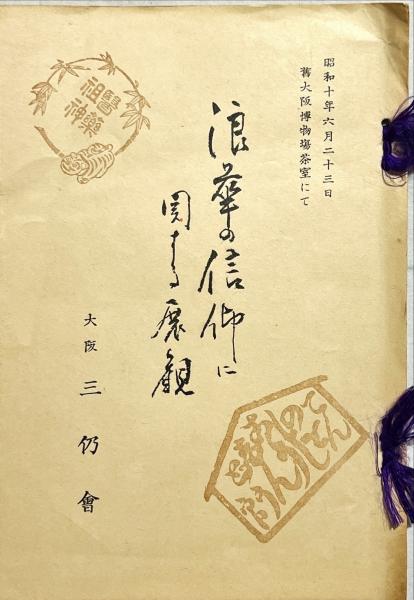 昭和十年六月二十三日
舊大阪博物場茶室にて
浪華の信仰に
関する展観
大阪 三仍會
醫藥
祖神